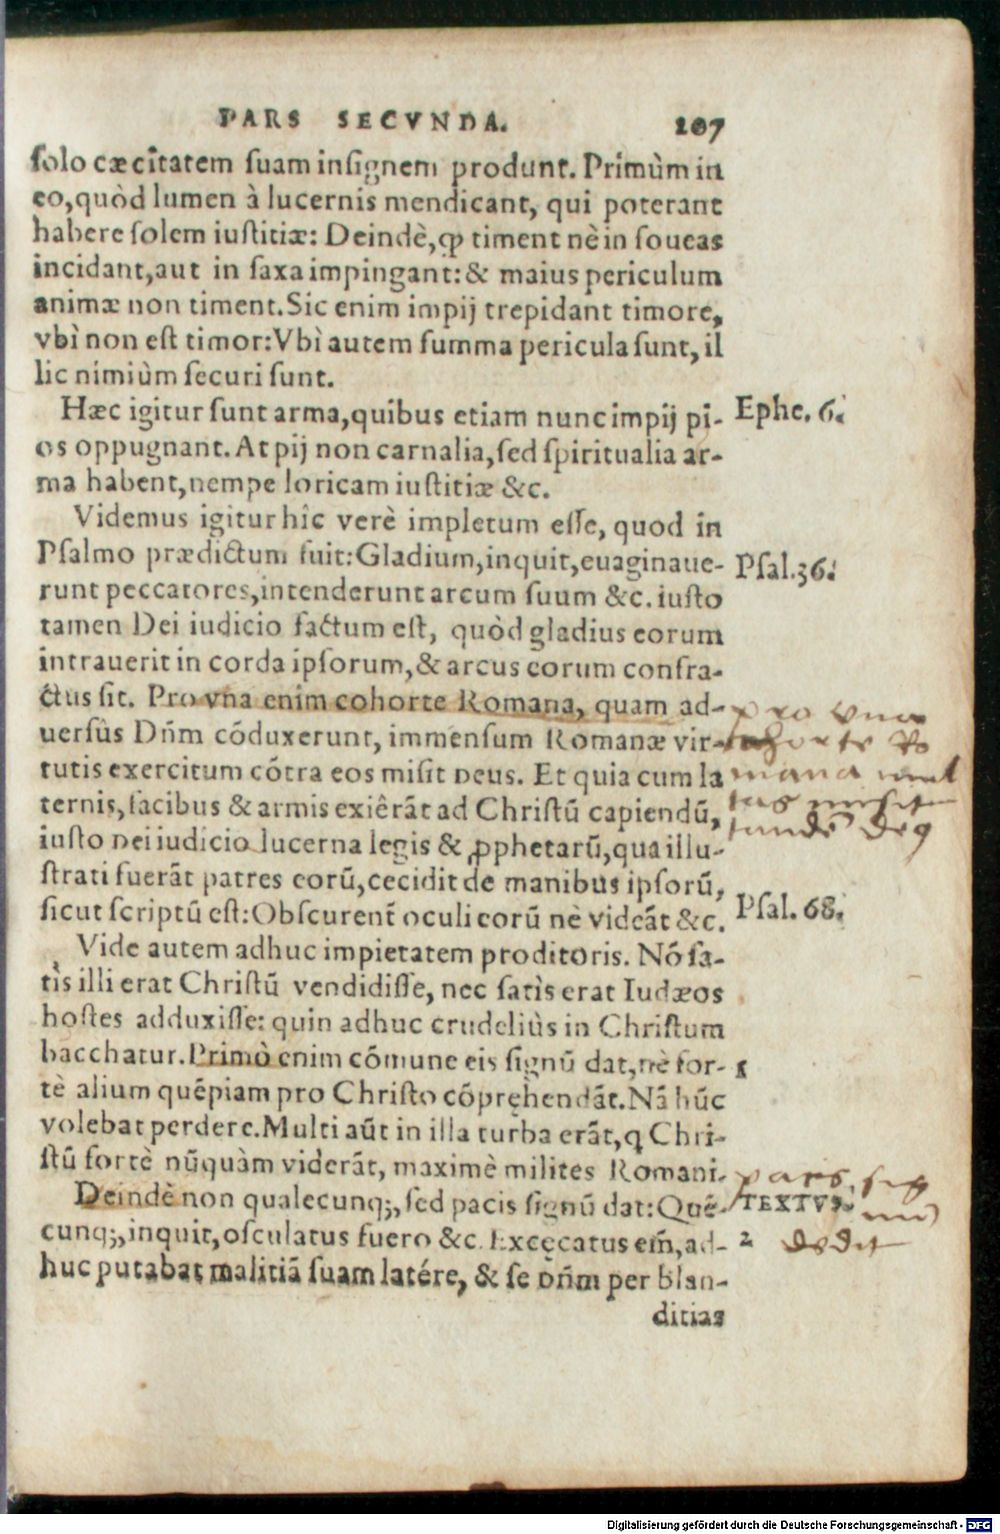 PARS SECVNDA. 107
solo cæcitatem suam insignem produnt. Primùm in
eo, quòd lumen à lucernis mendicant, qui poterant
habere solem iustitiæ: Deindè, ꝙ timent nè in foueas
incidant, aut in saxa impingant: & maius periculum
animæ non timent. Sic enim impij trepidant timore,
vbì non est timor: Vbì autem summa pericula sunt, il
lic nimiùm securi sunt.
Hæc igitur sunt arma, quibus etiam nunc impij pi-
Ephe. 6.
os oppugnant. At pij non carnalia, sed spiritualia ar-
ma habent, nempe loricam iustitiæ &c.
Videmus igitur hîc verè impletum esse, quod in
Psalmo prædictum fuit: Gladium, inquit, euaginaue-
Psal. 36.
runt peccatores, intenderunt arcum suum &c. iusto
tamen Dei iudicio factum est, quòd gladius eorum
intrauerit in corda ipsorum, & arcus eorum confra-
ctus sit. Pro vna enim cohorte Romana, quam ad-
pro vna
uersùs Dñm cōduxerunt, immensum Romanæ vir-
cohorte Ro
tutis exercitum cōtra eos misit Deus. Et quia cum la
mana mul
ternis, facibus & armis exiêrāt ad Christū capiendū,
tas misit
iusto Dei iudicio lucerna legis & ꝓphetarū, qua illu-
strati fuerāt patres eorū, cecidit de manibus ipsorū,
sicut scriptū est: Obscurent̄ oculi eorū nè videāt &c.
Psal. 68.
Vide autem adhuc impietatem proditoris. Nō sa-
tìs illi erat Christū vendidisse, nec satìs erat Iudæos
hostes adduxisse: quin adhuc crudeliùs in Christum
bacchatur. Primò enim cōmune eis signū dat, nè for-
1
tè alium quēpiam pro Christo cōprehendāt. Nā hūc
volebat perdere. Multi aūt in illa turba erāt, q Chri-
stū fortè nūquàm viderāt, maximè milites Romani.
Deindè non qualecunq;, sed pacis signū dat: Quē-
TEXTVS.
cunq;, inquit, osculatus fuero &c. Excęcatus em̄, ad-
2
dedit
huc putabat malitiā suam latére, & se Dñm per blan-
ditias
Digitalisierung gefördert durch die Deutsche Forschungsgemeinschaft - DFG